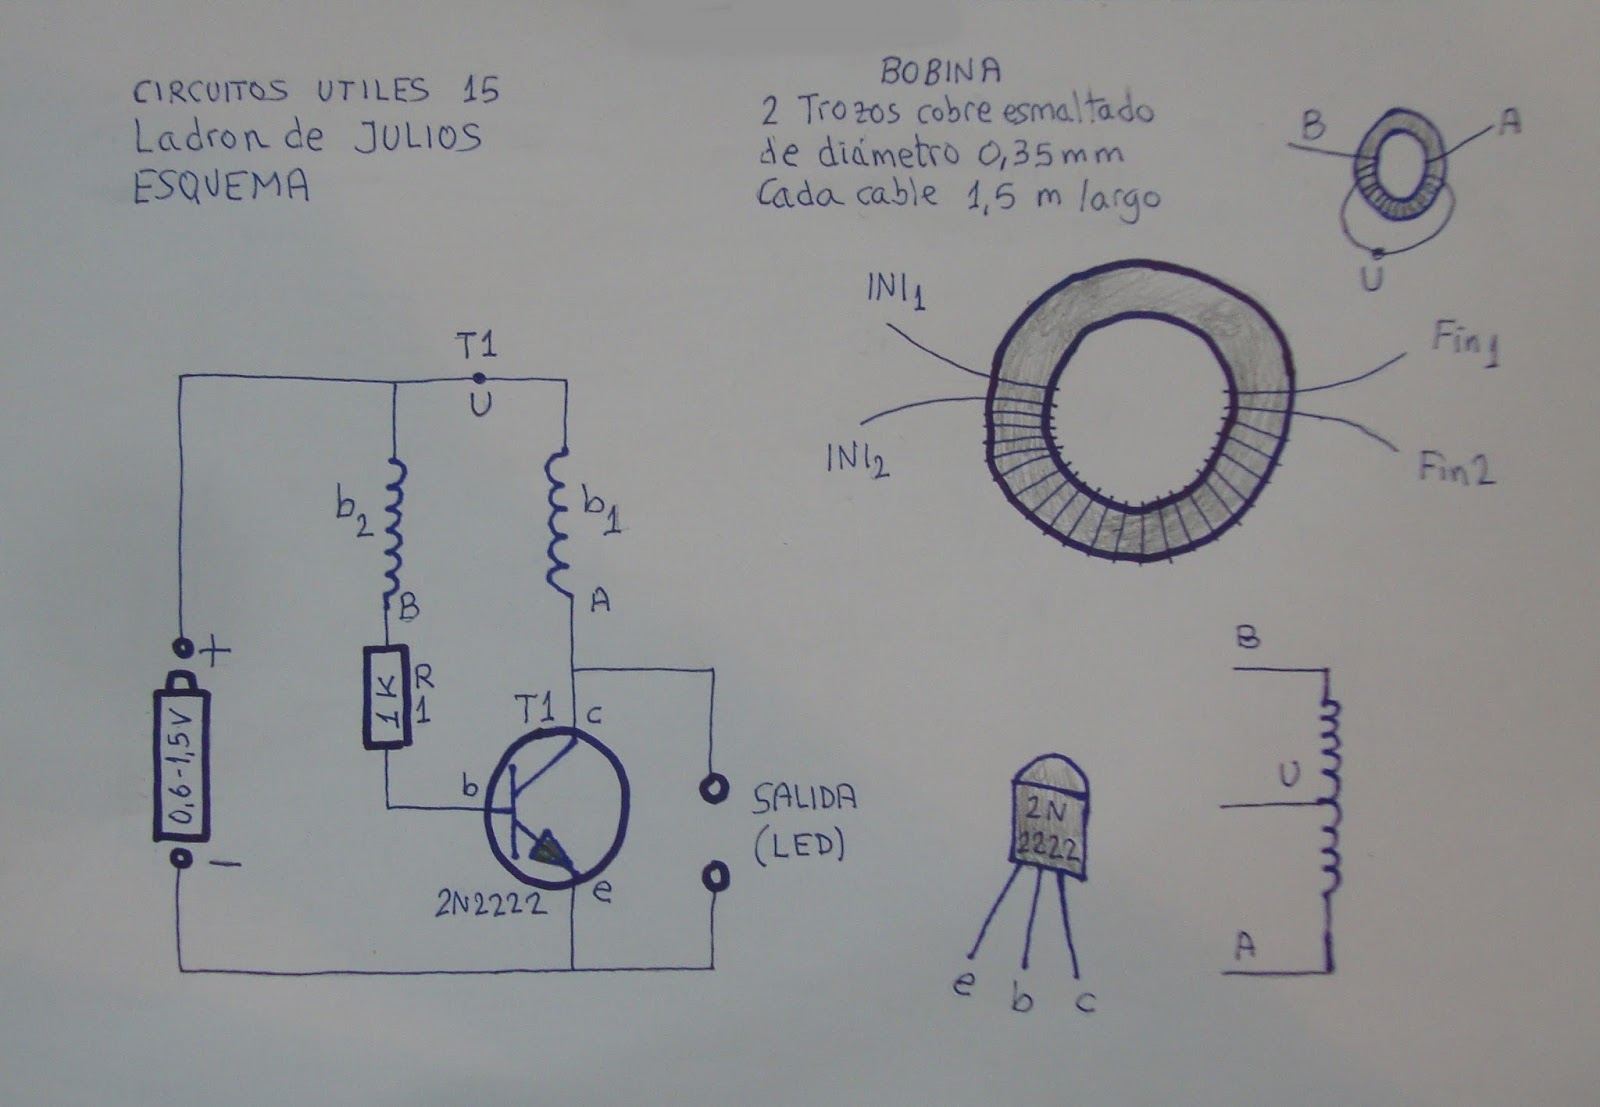 CIRCUITOS UTILES 15
Ladron de JULIOS
ESQUEMA
BOBINA
2 Trozos cobre esmaltado
de diámetro 0,35mm
Cada cable 1,5 m largo
B
A
U
INI1
INI2
Fin1
Fin2
T1
U
b2
b1
B
A
+
0,6-1,5V
-
1K
R1
T1
c
b
e
2N2222
SALIDA
(LED)
2N
2222
e b c
B
U
A